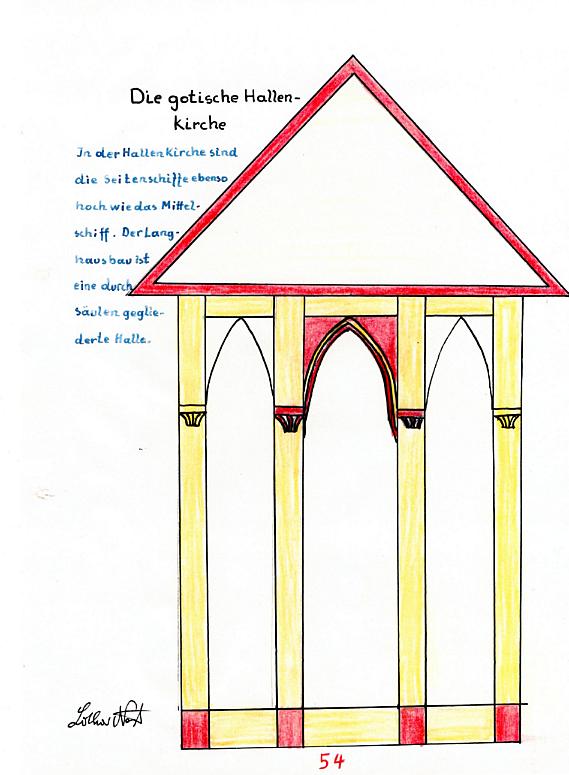 Die gotische Hallen-
kirche
In der Hallenkirche sind
die Seitenschiffe ebenso
hoch wie das Mittel-
schiff. Der Lang-
hausbau ist
eine durch
Säulen geglie-
derte Halle.
Lothar
54